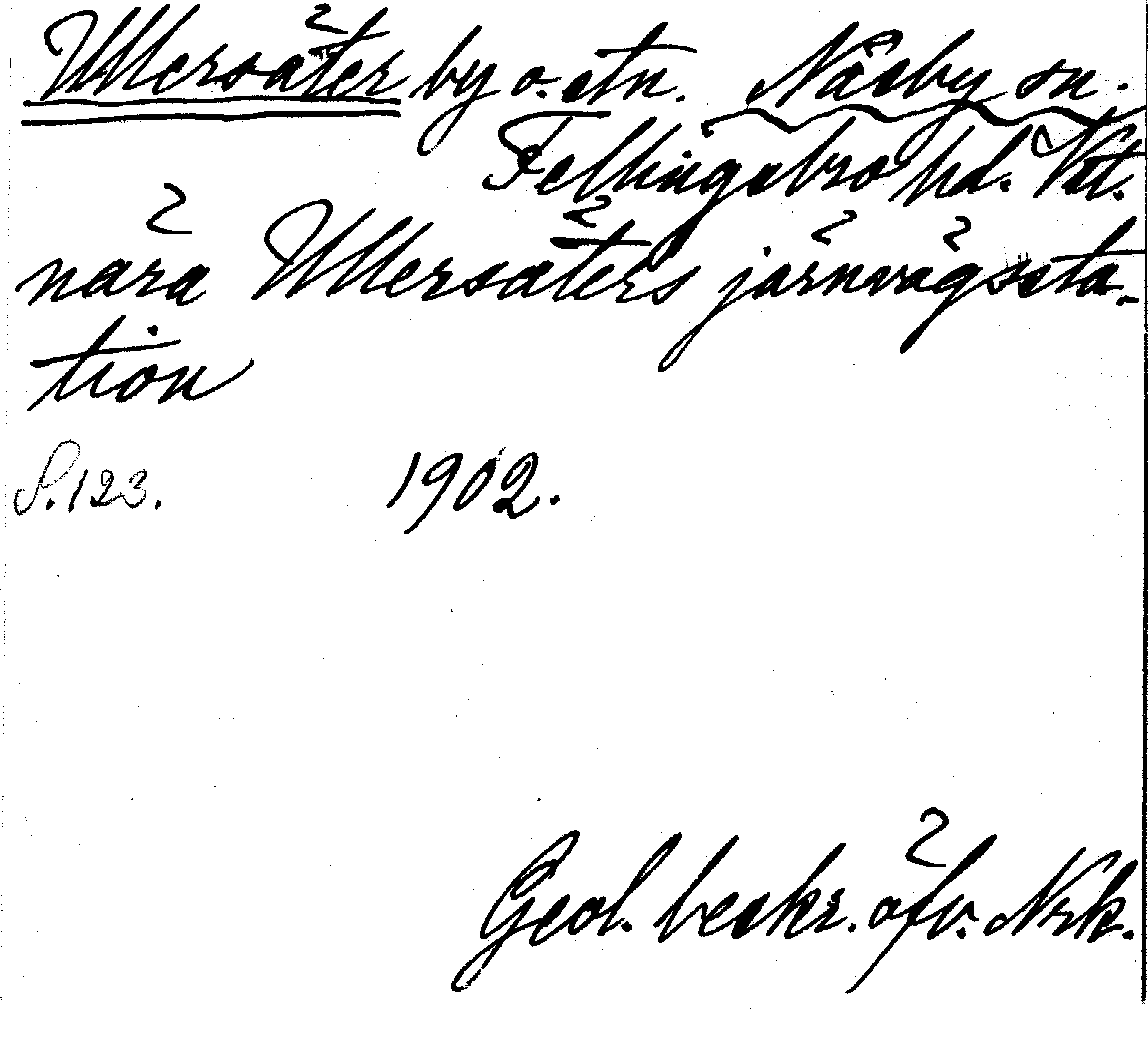 Ullersäter by o. stn. Näsby sn.
Fellingsbro hd. Vstt.
nära Ullersäters järnvägssta-
tion
S. 123. 1902.
Geol. beskr. öfv. Nrk.